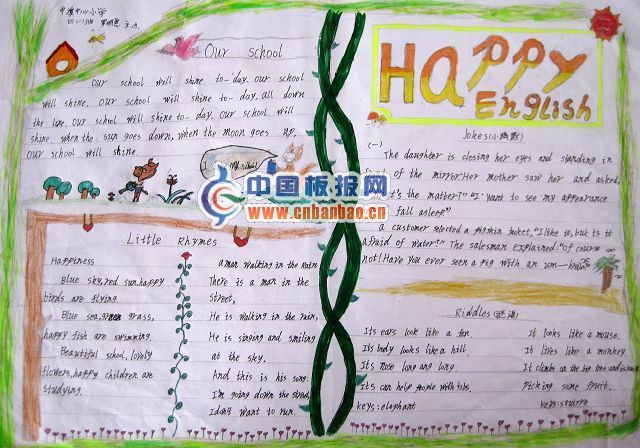 中心小学
Our school
Our school will shine to-day. Our school
will shine. Our school will shine to-day, all down
the lane. Our school will shine to-day. Our school will
shine. when the sun goes down, when the moon goes up,
Our school will shine.
中国板报网
www.cnbanbao.cn
Little Rhymes
Happiness
Blue sky, red sun, happy
birds are flying.
Blue sea, green grass,
happy fish are swimming.
Beautiful school, lovely
flowers, happy children are
studying.
a man walking in the rain
There is a man in the
street,
He is walking in the rain,
He is singing and smiling
at the sky.
And this is his song.
I'm going down the street
I don't want to run.
HAPPY
English
Jokes(小幽默)
(一)
The daughter is closing her eyes and standing in
of the mirror. Her mother saw her and asked,
's the matter?" "I want to see my appearance
fall asleep"
a customer selected a pigskin jacket, "I like it, but is it
afraid of water?" The salesman explained: "Of course
not! Have you ever seen a pig with an um-brella
Riddles(谜语)
Its ears look like a fan.
Its body looks like a hill.
Its nose long ang long.
Its can help people with jobs.
keys: elephant
It looks like a mouse.
It lives like a monkey.
It climbs on the big tree and is
Picking some fruit.
keys: squirre